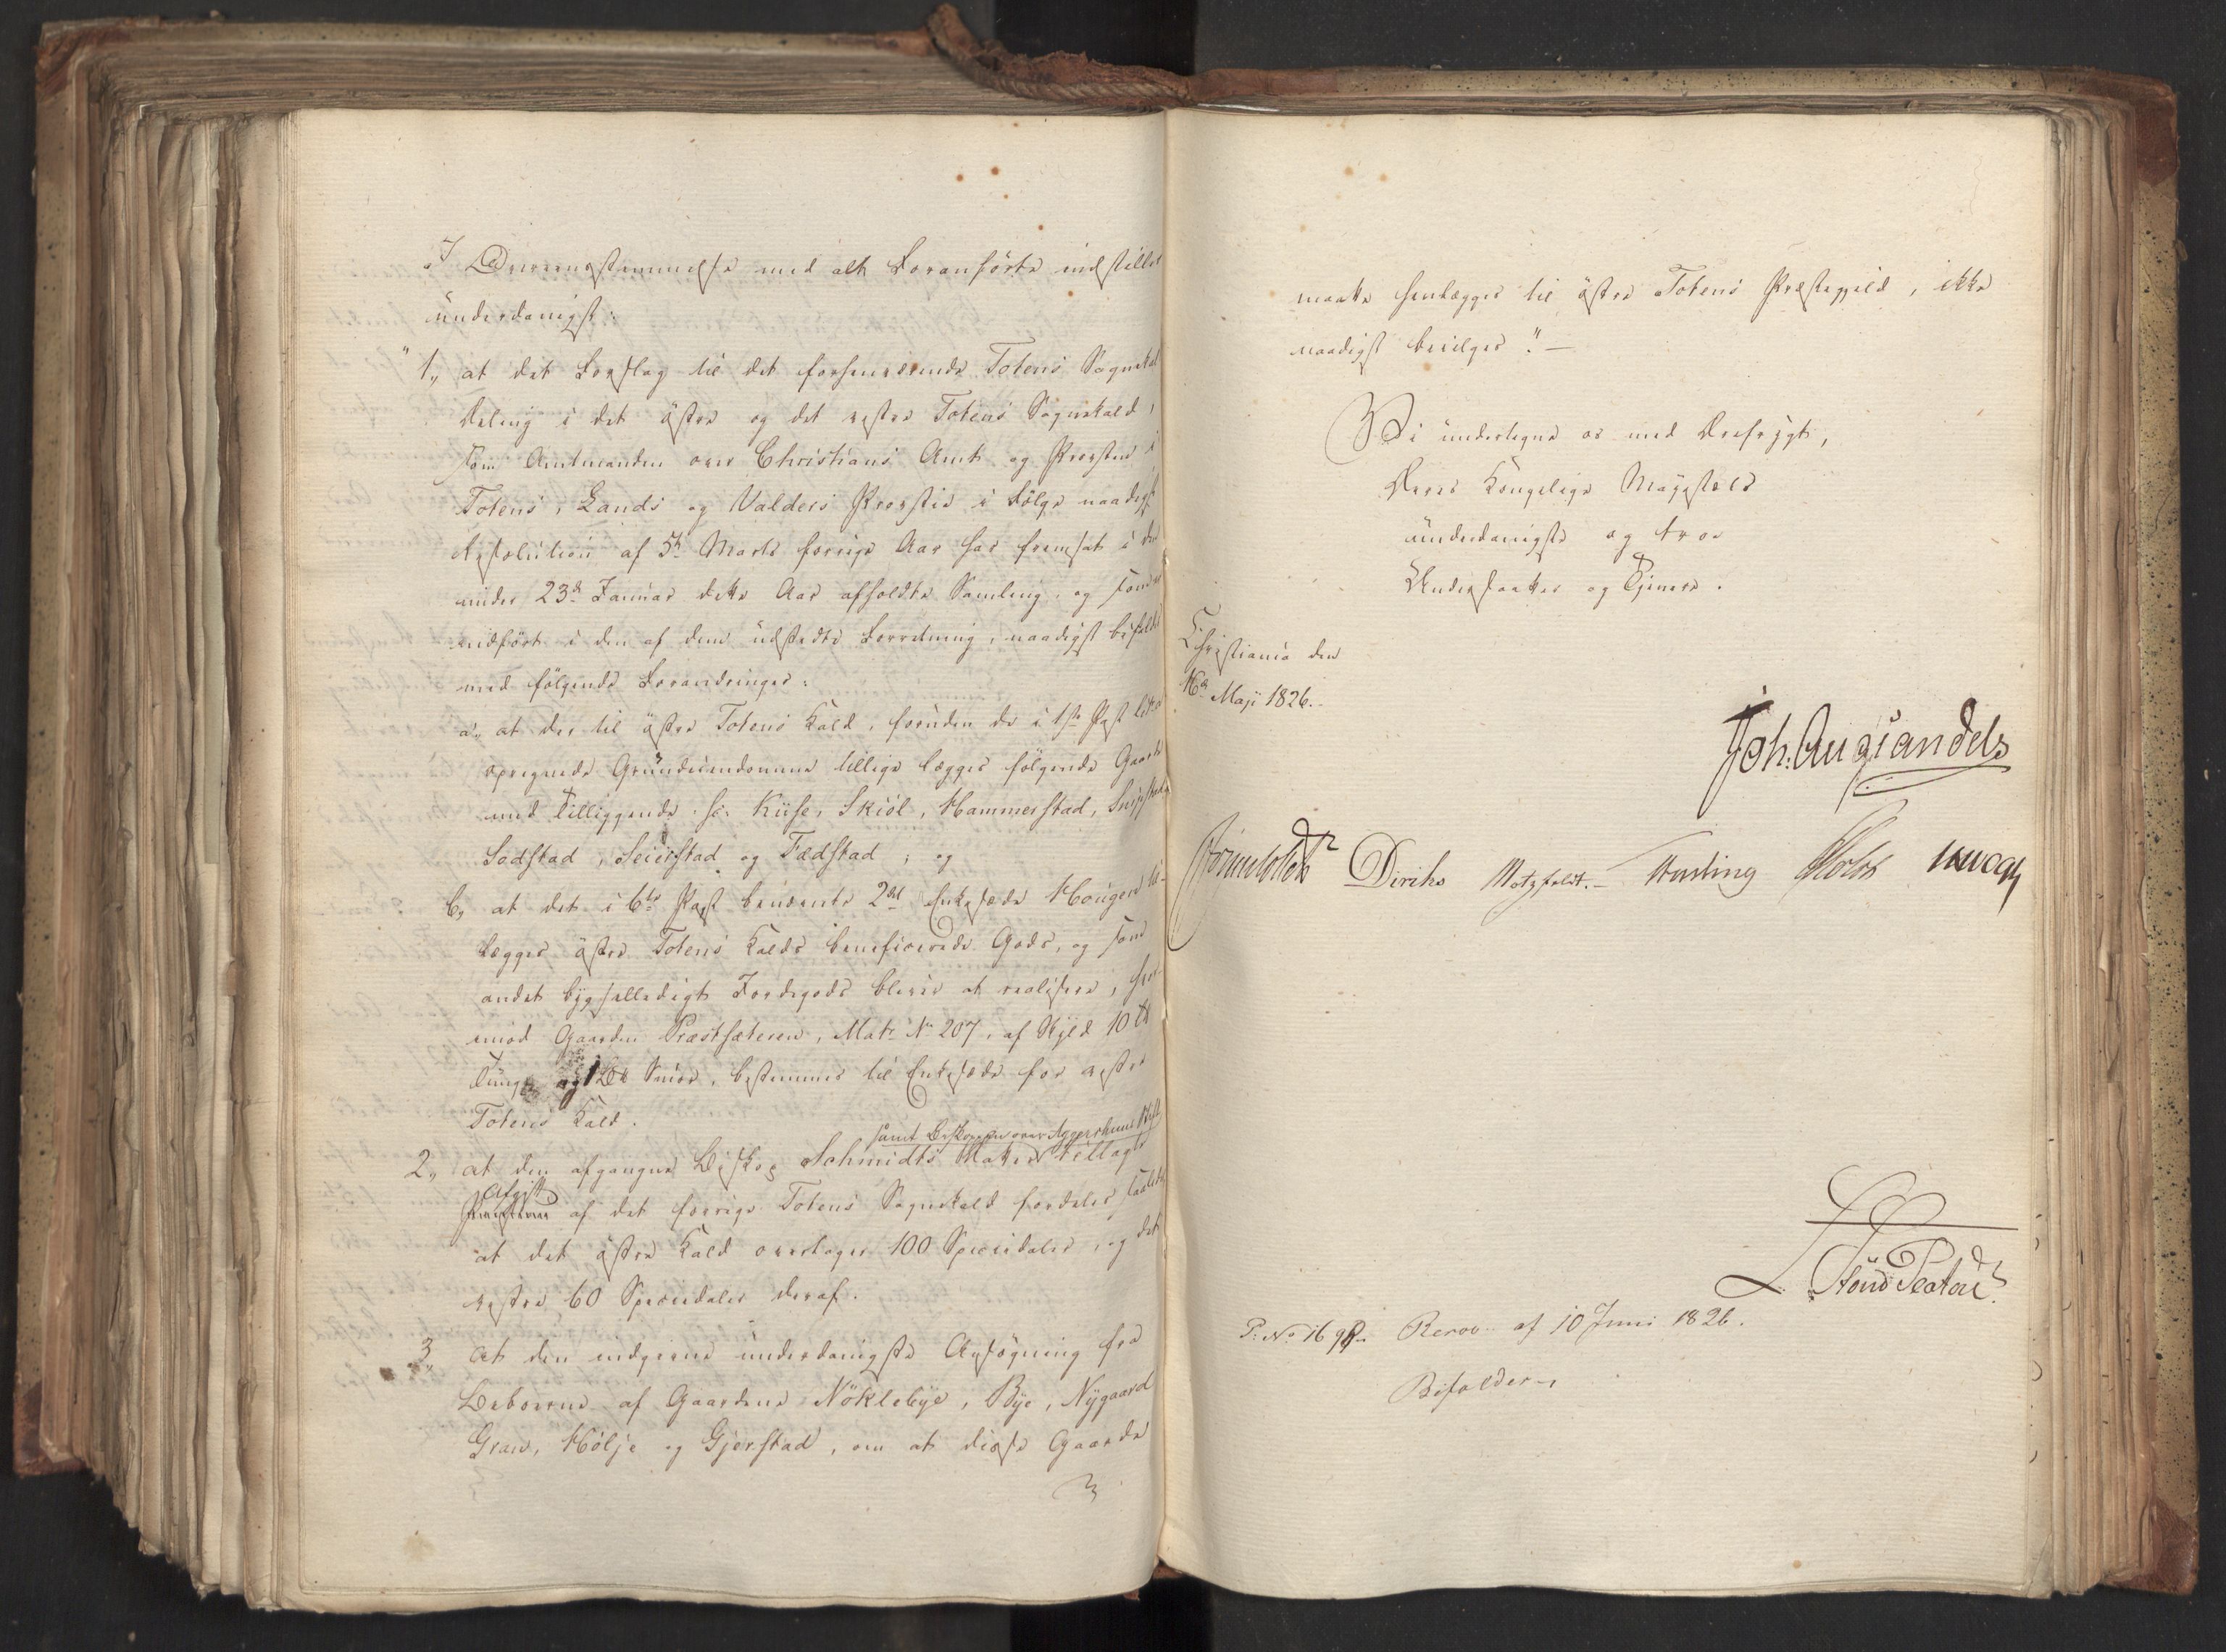 I Overeensstemmelse med alt Foranførte indstilles
ünderdanigst:
" 1,, at det Forslag til det forhenværende Totens Sognekalds
Deling i det østre og det vestre Totens Sognekald,
som Amtmanden over Christians Amt og Provsten i
Totens, Lands og Valders Provstie i Følge naadigst
Resolution af 5te Marts forrige Aar har fremsat i den
under 23de Januar dette Aar afholdte Samling, og som er
indført i den af dem üdstedte Forretning, naadigst bifaldes
med følgende Forandringer:
a,, at der til østre Totens Kald, foruden de i 1ste Post litr.
opregnede Grundeiendomme tillige lægges følgende Gaarde
med Tilliggende: sc: Kise, Skiöl, Hammerstad,
Sodstad, Seierstad og Fædstad; og
b, at det i 6te Post benævnte 2det Enkesæde Hougen
lægges østre Totens Kalds beneficerede Gods, og som
andet bygselledigt Jordegods bliver at realisere, her-
imod Gaarden Præstsæteren, Matr. No 207, af Skyld 10 ℔
Tunge og 1 Bd Smør, bestemmes til Enkesæde for vestre
Totens Kald.
2,, at den afgangne Biskop Schmidts Enke samt Biskoppen over Aggershuus Stift tillagte
Afgift af det forrige Totens Sognekald fordeles saaledes
at det østre Kald overtager 100 Speciedaler, og det
vestre 60 Speciedaler deraf.
3,, at den indgivne ünderdanigste Ansøgning fra
Beboerne af Gaardene Nöklebye, Bye, Nygaard
Gran, Hölje og Gjerstad, om at disse Gaarde
maatte henlægges til østre Totens Præstegjeld, ikke
naadigst bevilges." —
Vi ündertegne os med Ærefrygt,
Deres Kongelige Majestæts
ünderdanigste og troe
Undersaatter og Tjenere.
Christiania den
16de Maji 1826.
Joh: Aug: Sandels
Diriks Motzfeldt. Fasting Holst
P: No 169 Renov. af 10 Juni 1826.
Bifaldes